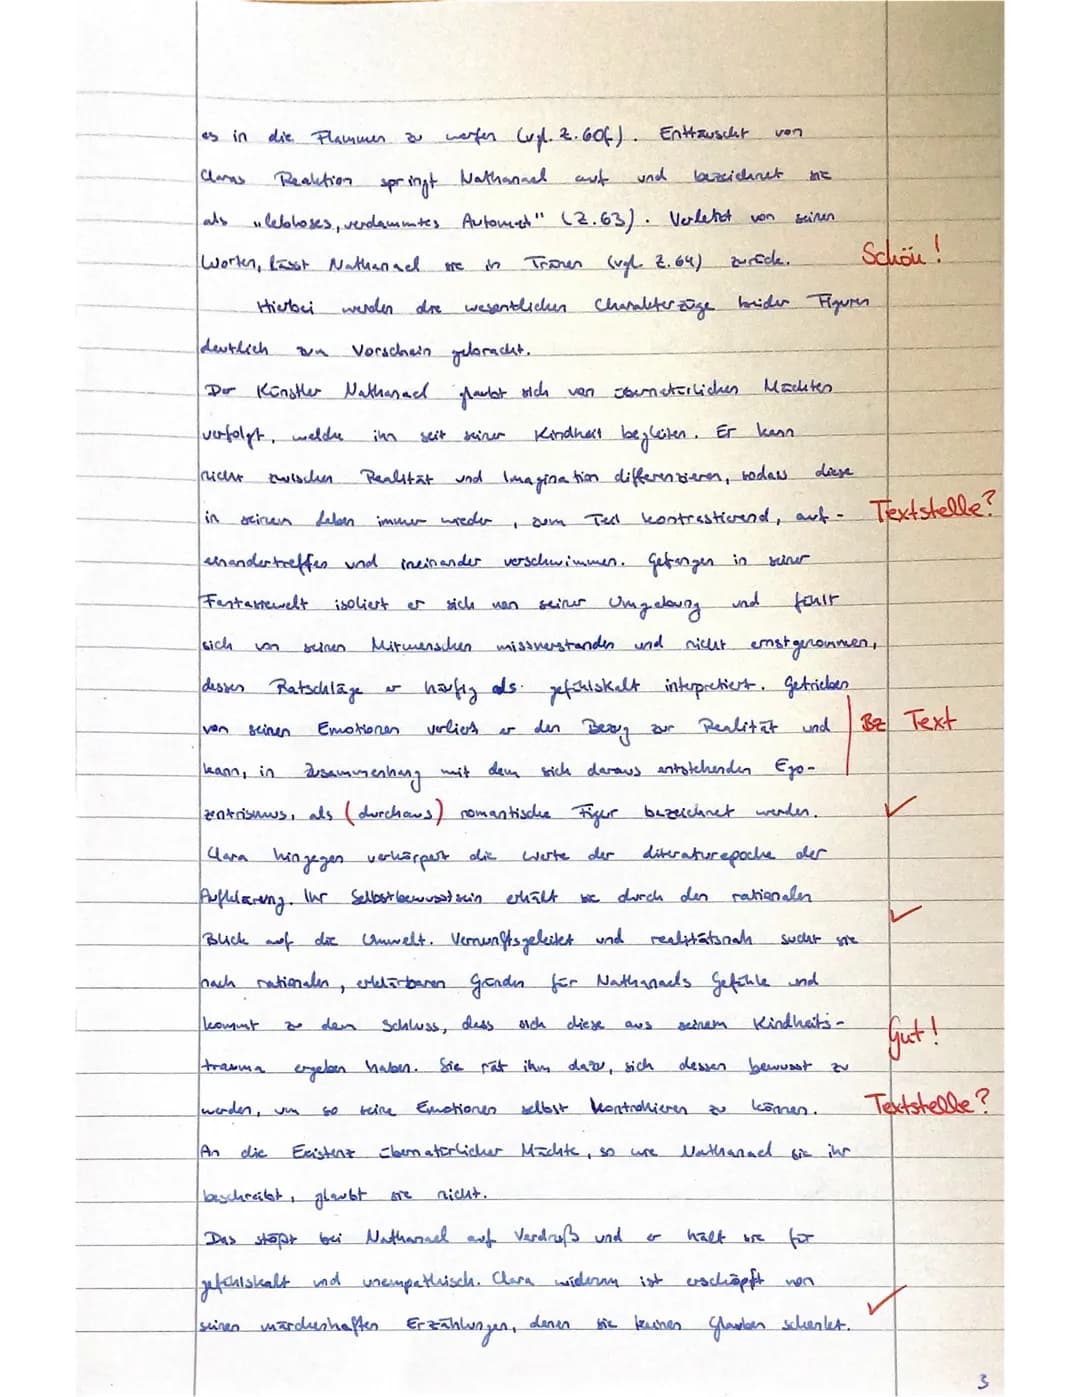 es in die Flammen zu werfen (vgl. Z. 60f.). Enttäuscht von
Claras Reaktion springt Nathanael auf und bezeichnet sie
als „lebloses, verdammtes Automat" (Z. 63). Verletzt von seinen
Worten, lässt Nathanael sie in Tränen (vgl. Z. 64) zurück.
Schön!
Hierbei werden die wesentlichen Charakterzüge beider Figuren
deutlich zum Vorschein gebracht.
Der Künstler Nathanael glaubt sich von übernatürlichen Mächten
verfolgt, welche ihn seit seiner Kindheit begleiten. Er kann
nicht zwischen Realität und Imagination differenzieren, sodass diese
in seinem Leben immer wieder, zum Teil kontrastierend, auf-
Textstelle?
einandertreffen und ineinander verschwimmen. Gefangen in seiner
Fantasiewelt isoliert er sich von seiner Umgebung und fühlt
sich von seinen Mitmenschen missverstanden und nicht ernstgenommen,
dessen Ratschläge er häufig als gefühlskalt interpretiert. Getrieben
von seinen Emotionen verliert er den Bezug zur Realität und
Bz Text
kann, in Zusammenhang mit dem sich daraus entstehenden Ego-
zentrismus, als (durchaus) romantische Figur bezeichnet werden.
Clara hingegen verkörpert die Werte der Literaturepoche der
Aufklärung. Ihr Selbstbewusstsein erhält sie durch den rationalen
Blick auf die Umwelt. Vernunftsgeleitet und realitätsnah sucht sie
nach rationalen, erklärbaren Gründen für Nathanaels Gefühle und
kommt zu dem Schluss, dass sich diese aus seinem Kindheits-
Gut!
trauma ergeben haben. Sie rät ihm dazu, sich dessen bewusst zu
werden, um so seine Emotionen selbst kontrollieren zu können.
Textstelle?
An die Existenz übernatürlicher Mächte, so wie Nathanael sie ihr
beschreibt, glaubt sie nicht.
Das stößt bei Nathanael auf Verdruß und er hält sie für
gefühlskalt und unempathisch. Clara widerum ist erschöpft von
seinen märchenhaften Erzählungen, denen sie keinen Glauben schenkt.
3